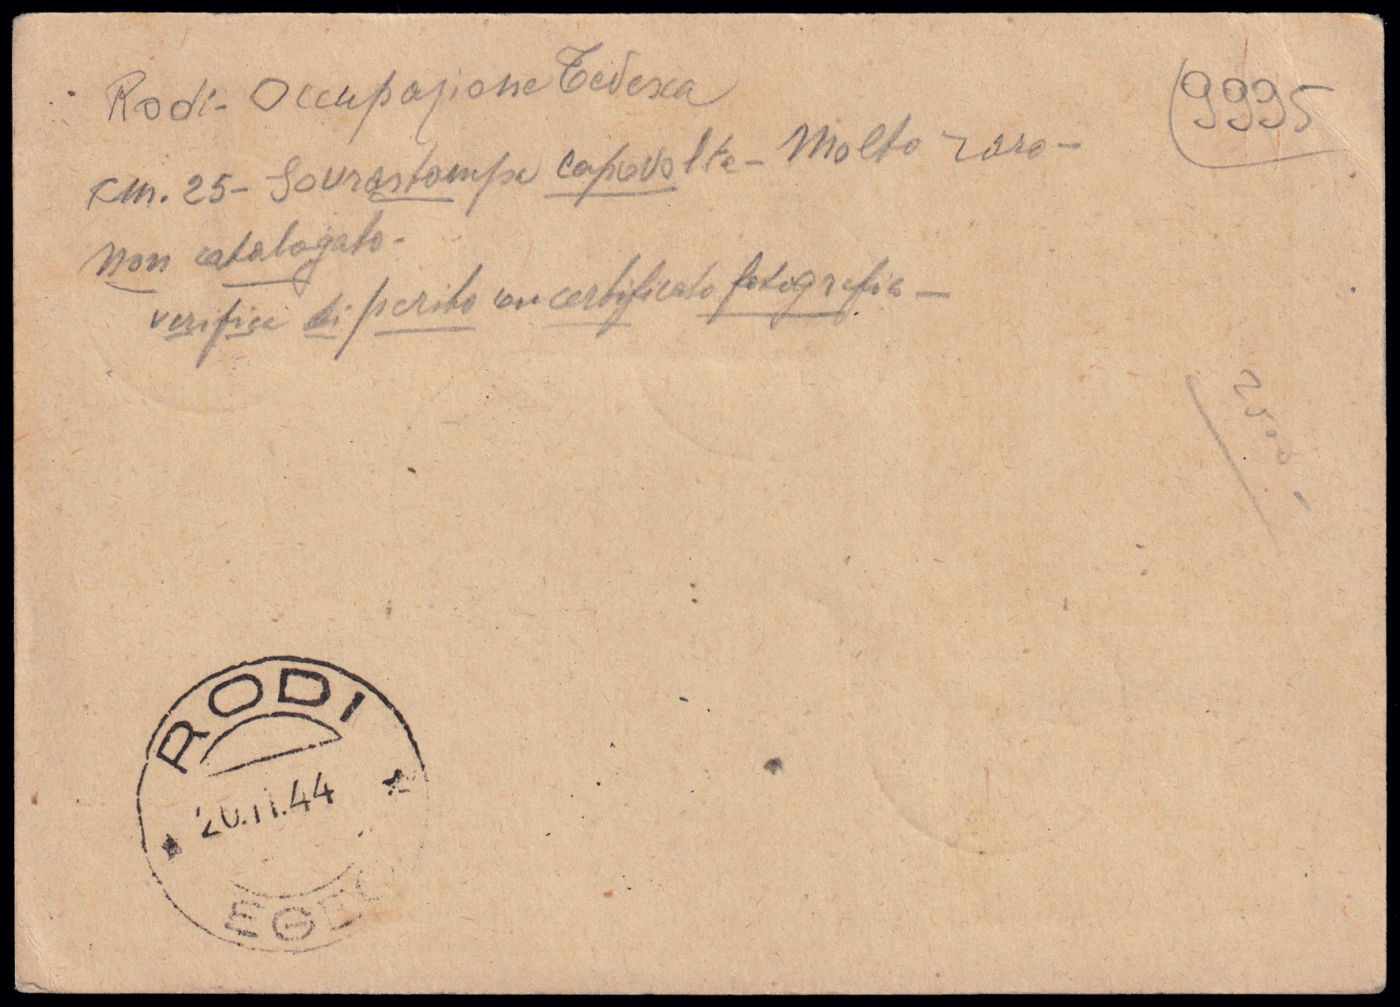 Rodi - Occupazione Tedesca
9995
cm. 25 - Sovrastampe capovolte - Molto raro -
non catalogato -
verifica di perito con certificato fotografia -
RODI
20.11.44
EGEO